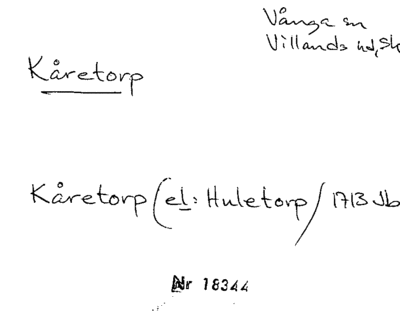 Vånga sn
Villands hd, Sk
Kåretorp
Kåretorp (el: Huletorp / 1713 Jb
Nr 18344